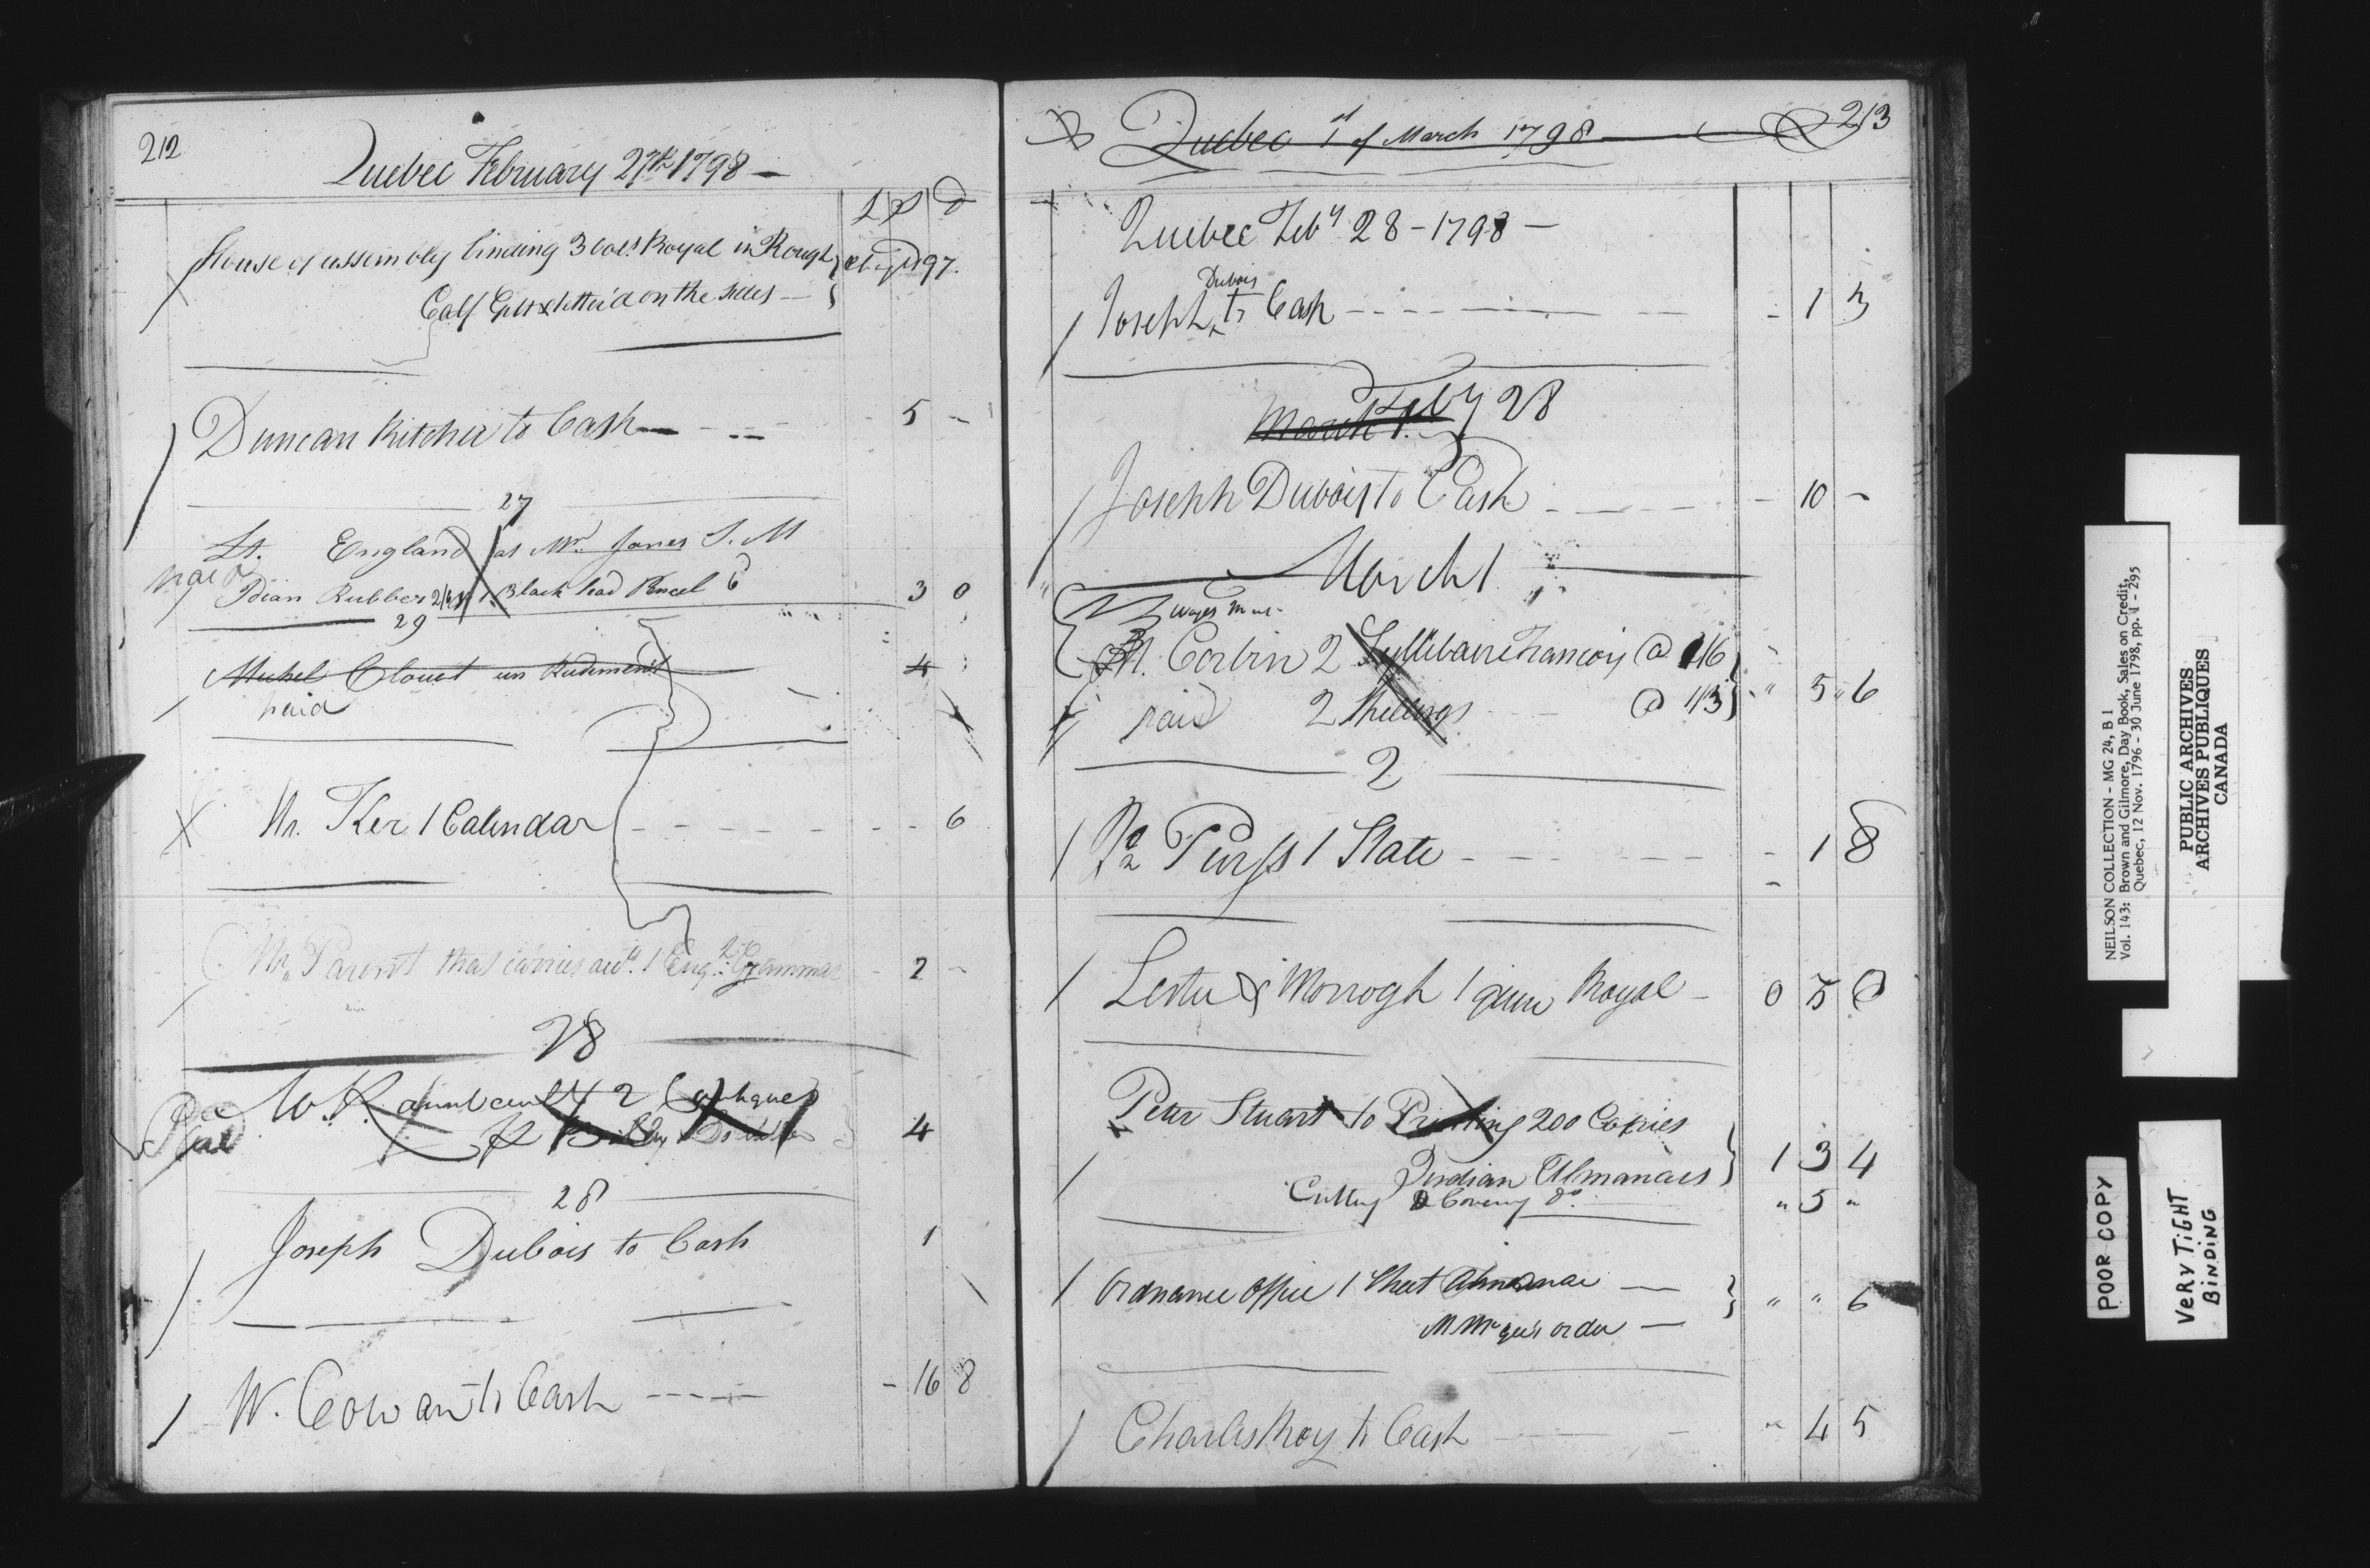 212
Quebec February 27th 1798 —
L S D
House of assembly binding 3 vols Royal in Rough
Calf Gilt & letter'd on the sides —
Duncan Kitchir to Cash — 5 -
27
Lt. England at Mr. Jones S. M
paid
Idian Rubber 1 Black lead Pencel 6 3 0
29
Michel Clouet un Rudiment 4
paid
Mr. Ker 1 Calendar 6
Mr. Parent that carries 1 Eng. Grammar 2 -
28
2 Cantiques
4
28
Joseph Dubois to Cash 1
W. Cowan to Cash - 16 8
Quebec 1st of March 1798 213
Quebec Feby 28 - 1798 —
Dubois
Joseph to Cash - 1 3
March 1. Feby 28
Joseph Dubois to Cash - 10 -
March 1
M. Corbin 2 Syllibaire Francois @ 1/6
paid 2 @ 1/3 " 5 " 6
2
Jno Purss 1 Slate - 1 8
Lester & Morrogh 1 quire Royal - 0 5 0
Peter Stuart to Printing 200 Copies
Indian Almanacs 1 3 4
Cutting & Covering do. " 5 "
Ordnance Office 1 Sheet Almanac —
order — " " 6
Charles Roy to Cash " 4 5
NEILSON COLLECTION - MG 24, B 1
Vol. 143: Brown and Gilmore, Day Book, Sales on Credit,
Quebec, 12 Nov. 1796 - 30 June 1798, pp. 1 - 295
PUBLIC ARCHIVES
ARCHIVES PUBLIQUES
CANADA
POOR COPY
VERY TIGHT
BINDING